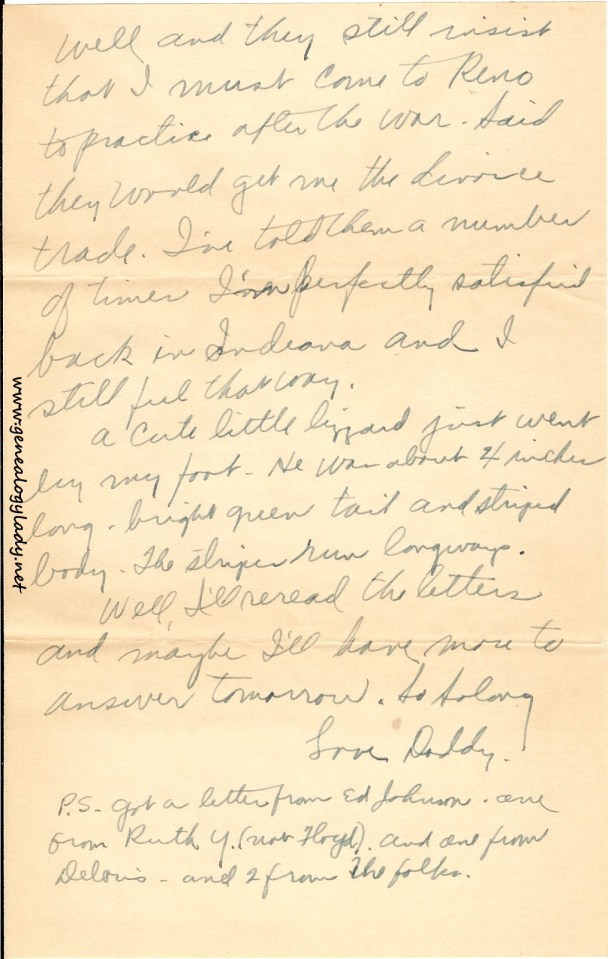 Well and they still insist
that I must come to Reno
to practice after the war. Said
they would get me the divorce
trade. I've told them a number
of times I'm perfectly satisfied
back in Indiana and I
still feel that way.
A cute little lizzard just went
by my foot - He was about 4 inches
long - bright green tail and striped
body. The stripes run longways.
Well, I'll reread the letters
and maybe I'll have more to
answer tomorrow. So So long
Love Daddy.
P.S. - got a letter from Ed Johnson - one
from Ruth Y. (not Floyd). and one from
Deloris - and 2 from the folks.
www.genealogylady.net